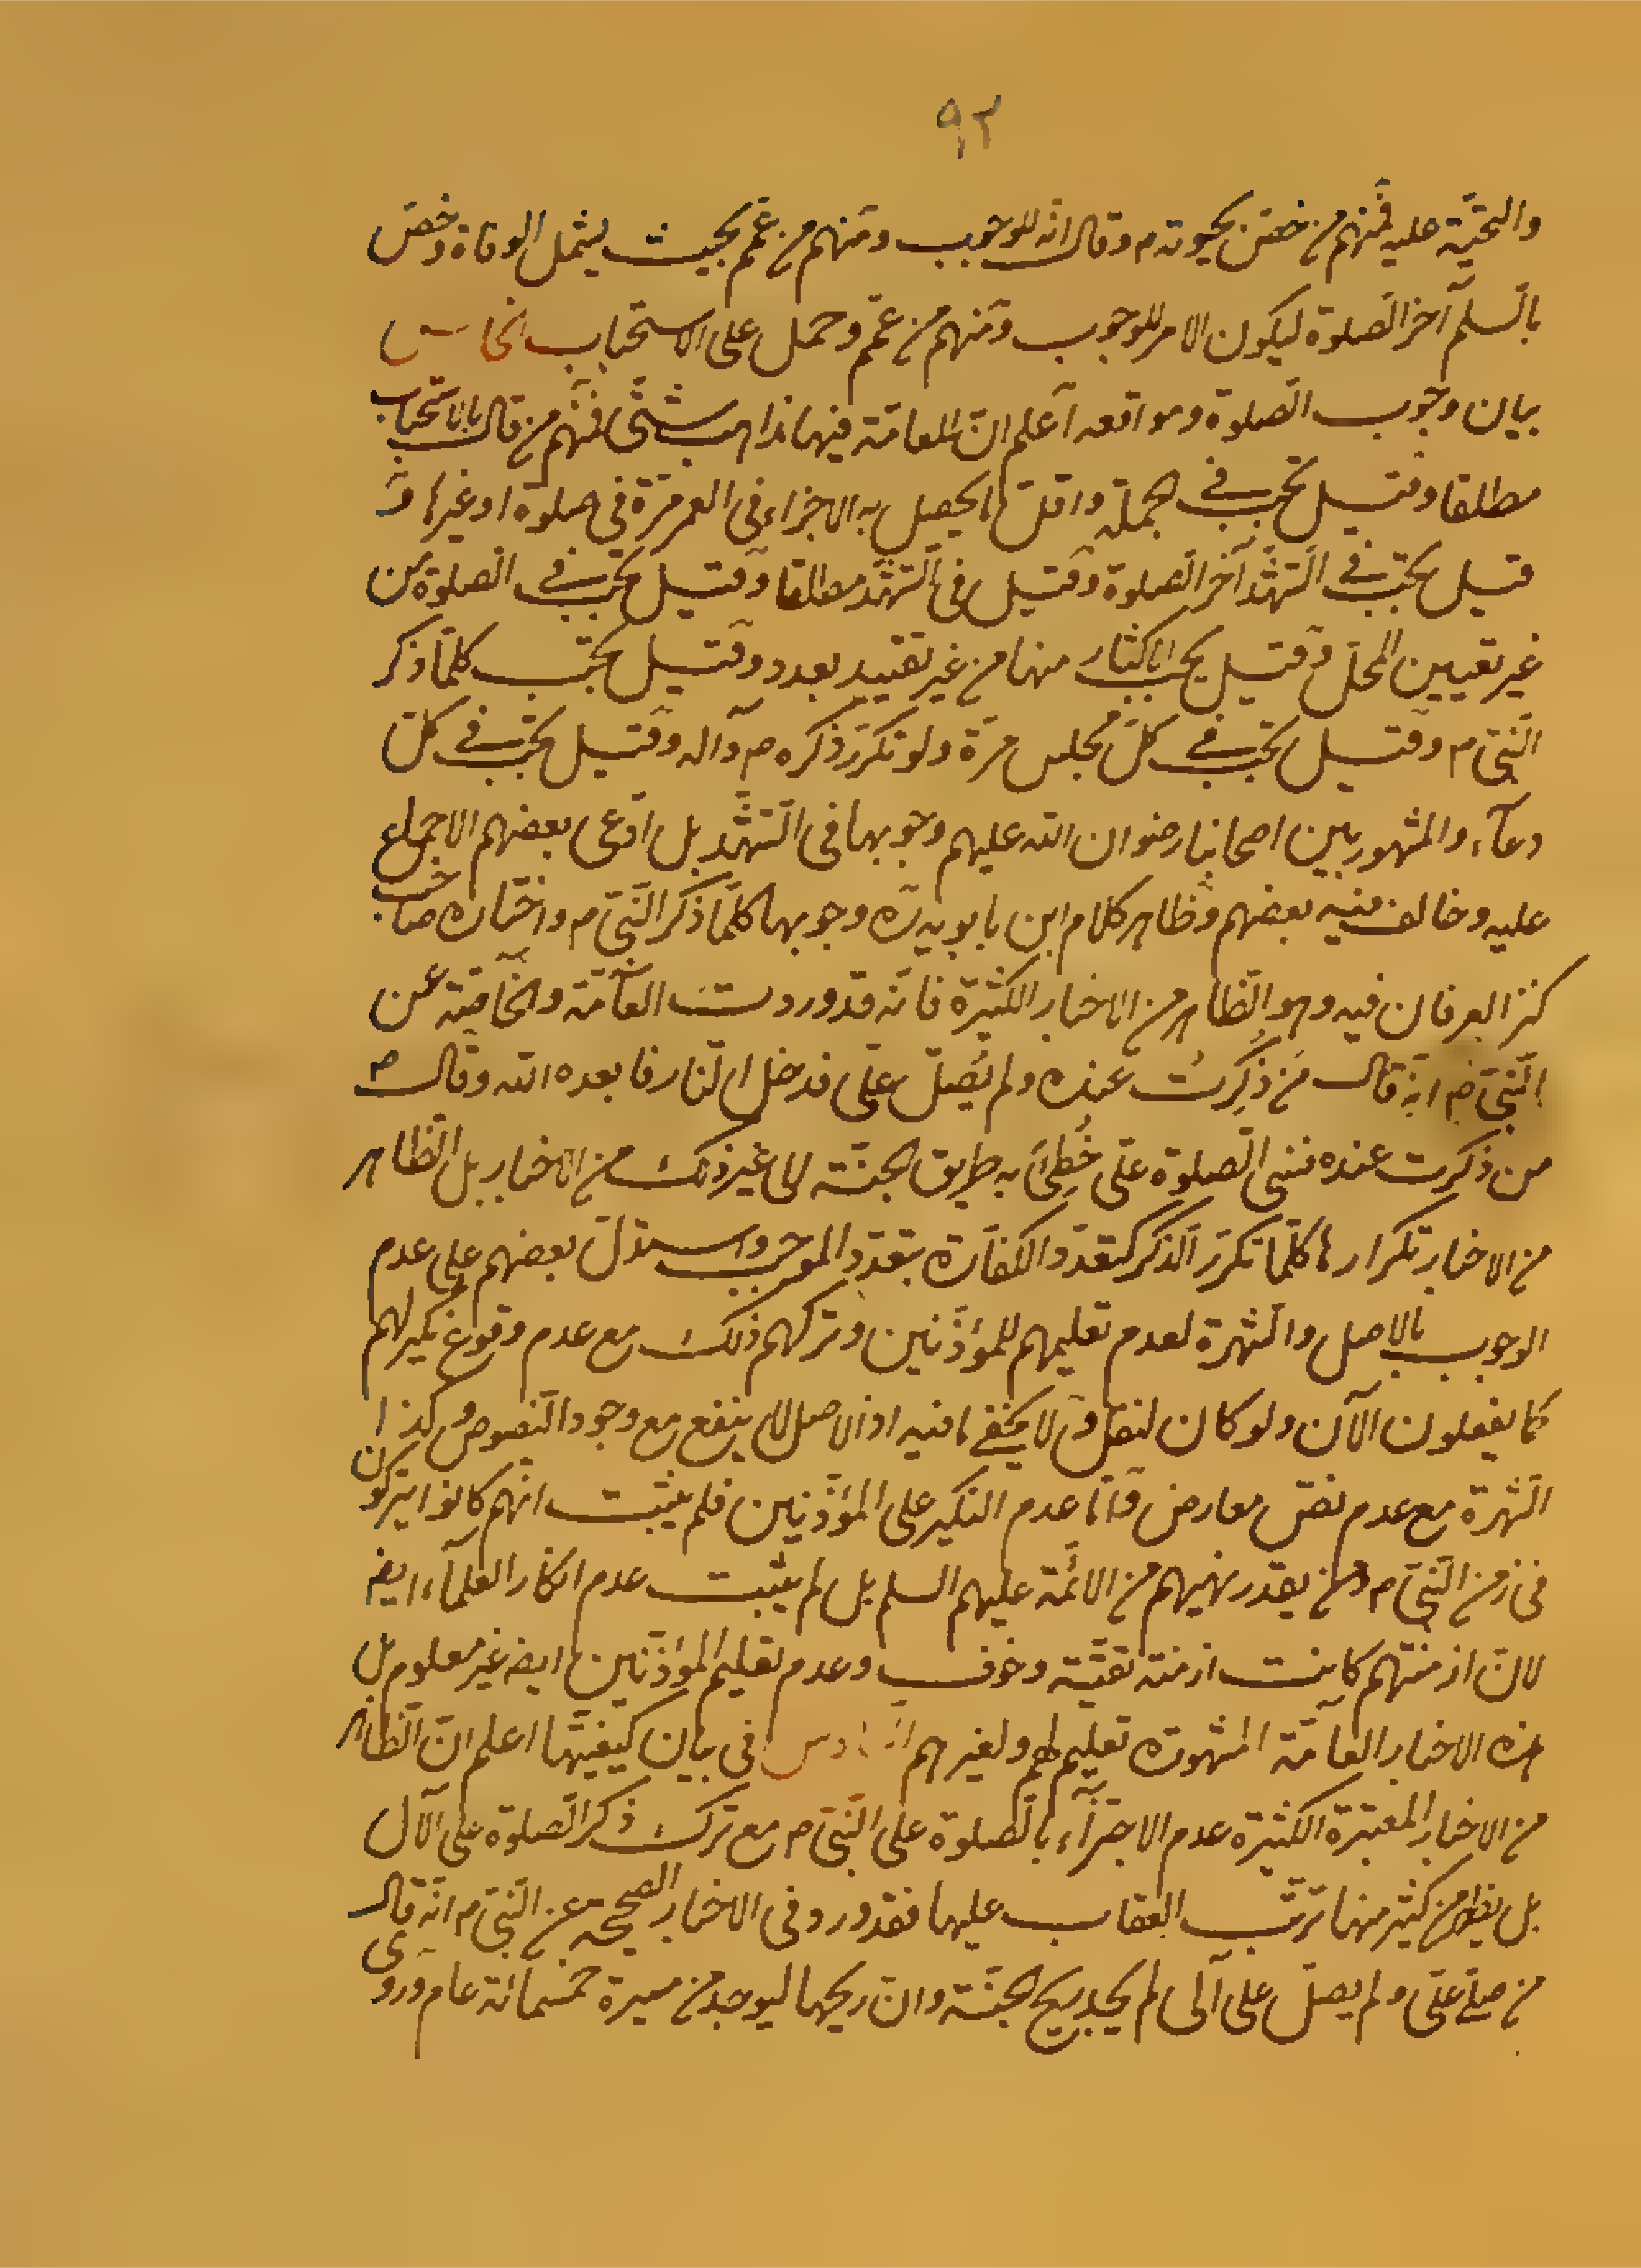 ٩٢
والتحيّة عليه فمنهم من خصّ بحيوته م وقال انه للوجوب ومنهم من عمّ بحيث يشمل الوفاة وخصّ
بالسلم آخر الصلوة ليكون الامر للوجوب ومنهم من عمّ وحمل على الاستحباب الخامس
بيان وجوب الصلوة ومواقعه اعلم انّ للعامّة فيها مذاهب شتّى فمنهم من قال بالاستحباب
مطلقا وقيل تجب في الجملة واقلّ ما يحصل به الاجزاء في العمر مرّة في صلوة او غيرها و
قيل تجب في التشهّد آخر الصلوة وقيل في التشهّد مطلقا وقيل تجب في الصلوة من
غير تعيين المحلّ وقيل يجب الاكثار منها من غير تقييد بعدد وقيل تجب كلّما ذكر
النبيّ م وقيل تجب في كلّ مجلس مرّة ولو تكرّر ذكره م وآله وقيل تجب في كلّ
دعآء والمشهور بين اصحابنا رضوان الله عليهم وجوبها في التشهّد بل ادّعى بعضهم الاجماع
عليه وخالف فيه بعضهم وظاهر كلام ابن بابويه ره وجوبها كلّما ذكر النبيّ م واختاره صاحب
كنز العرفان فيه وهو الظاهر من الاخبار الكثيرة فانّه قد وردت العآمّة والخآصّة عن
النبيّ ص انه قال من ذُكِرتُ عنده ولم يُصلّ علَى فدخل النار فابعده الله وقال ص
من ذكرت عنده فنسى الصلوة علىّ خُطِئَ به طريق الجنّة الى غير ذلك من الاخبار بل الظاهر
من الاخبار تكرارها كلّما تكرّر الذكر كتعدّد الكفّارة بتعدّد الموجب واستدلّ بعضهم على عدم
الوجوب بالاصل والشهرة لعدم تعليمهم للمؤذّنين وتركهم ذلك مع عدم وقوع نكير لهم
كما يفعلون الآن ولو كان لنقل ولا يخفى ما فيه اذ الاصل لا ينفع مع وجود النصوص وكذا
الشهرة مع عدم نصّ معارض وامّا عدم النكير على المؤذّنين فلم يثبت انهم كانوا يتركون
في زمن النبيّ م ومن يقدر نهيهم من الائمّة عليهم السلم بل لم يثبت عدم انكار العلمآء ايضا
لانّ ازمنتهم كانت ازمنة تقيّة وخوف وعدم تعليم المؤذّنين ايضا غير معلوم بل
هذه الاخبار العآمّة المشهورة تعليم لهم ولغيرهم السادس في بيان كيفيّتها اعلم انّ الظاهر
من الاخبار المعتبرة الكثيرة عدم الاجتزآء بالصلوة على النبيّ م مع ترك ذكر الصلوة على الآل
بل يظهر من كثير منها ترتّب العقاب عليها فقد ورد في الاخبار الصحيحة عن النبيّ م انّه قال
من صلّى علىّ ولم يصلّ على آلى لم يجد ريح الجنّة وانّ ريحها ليوجد من مسيرة خمسمائة عام وروى